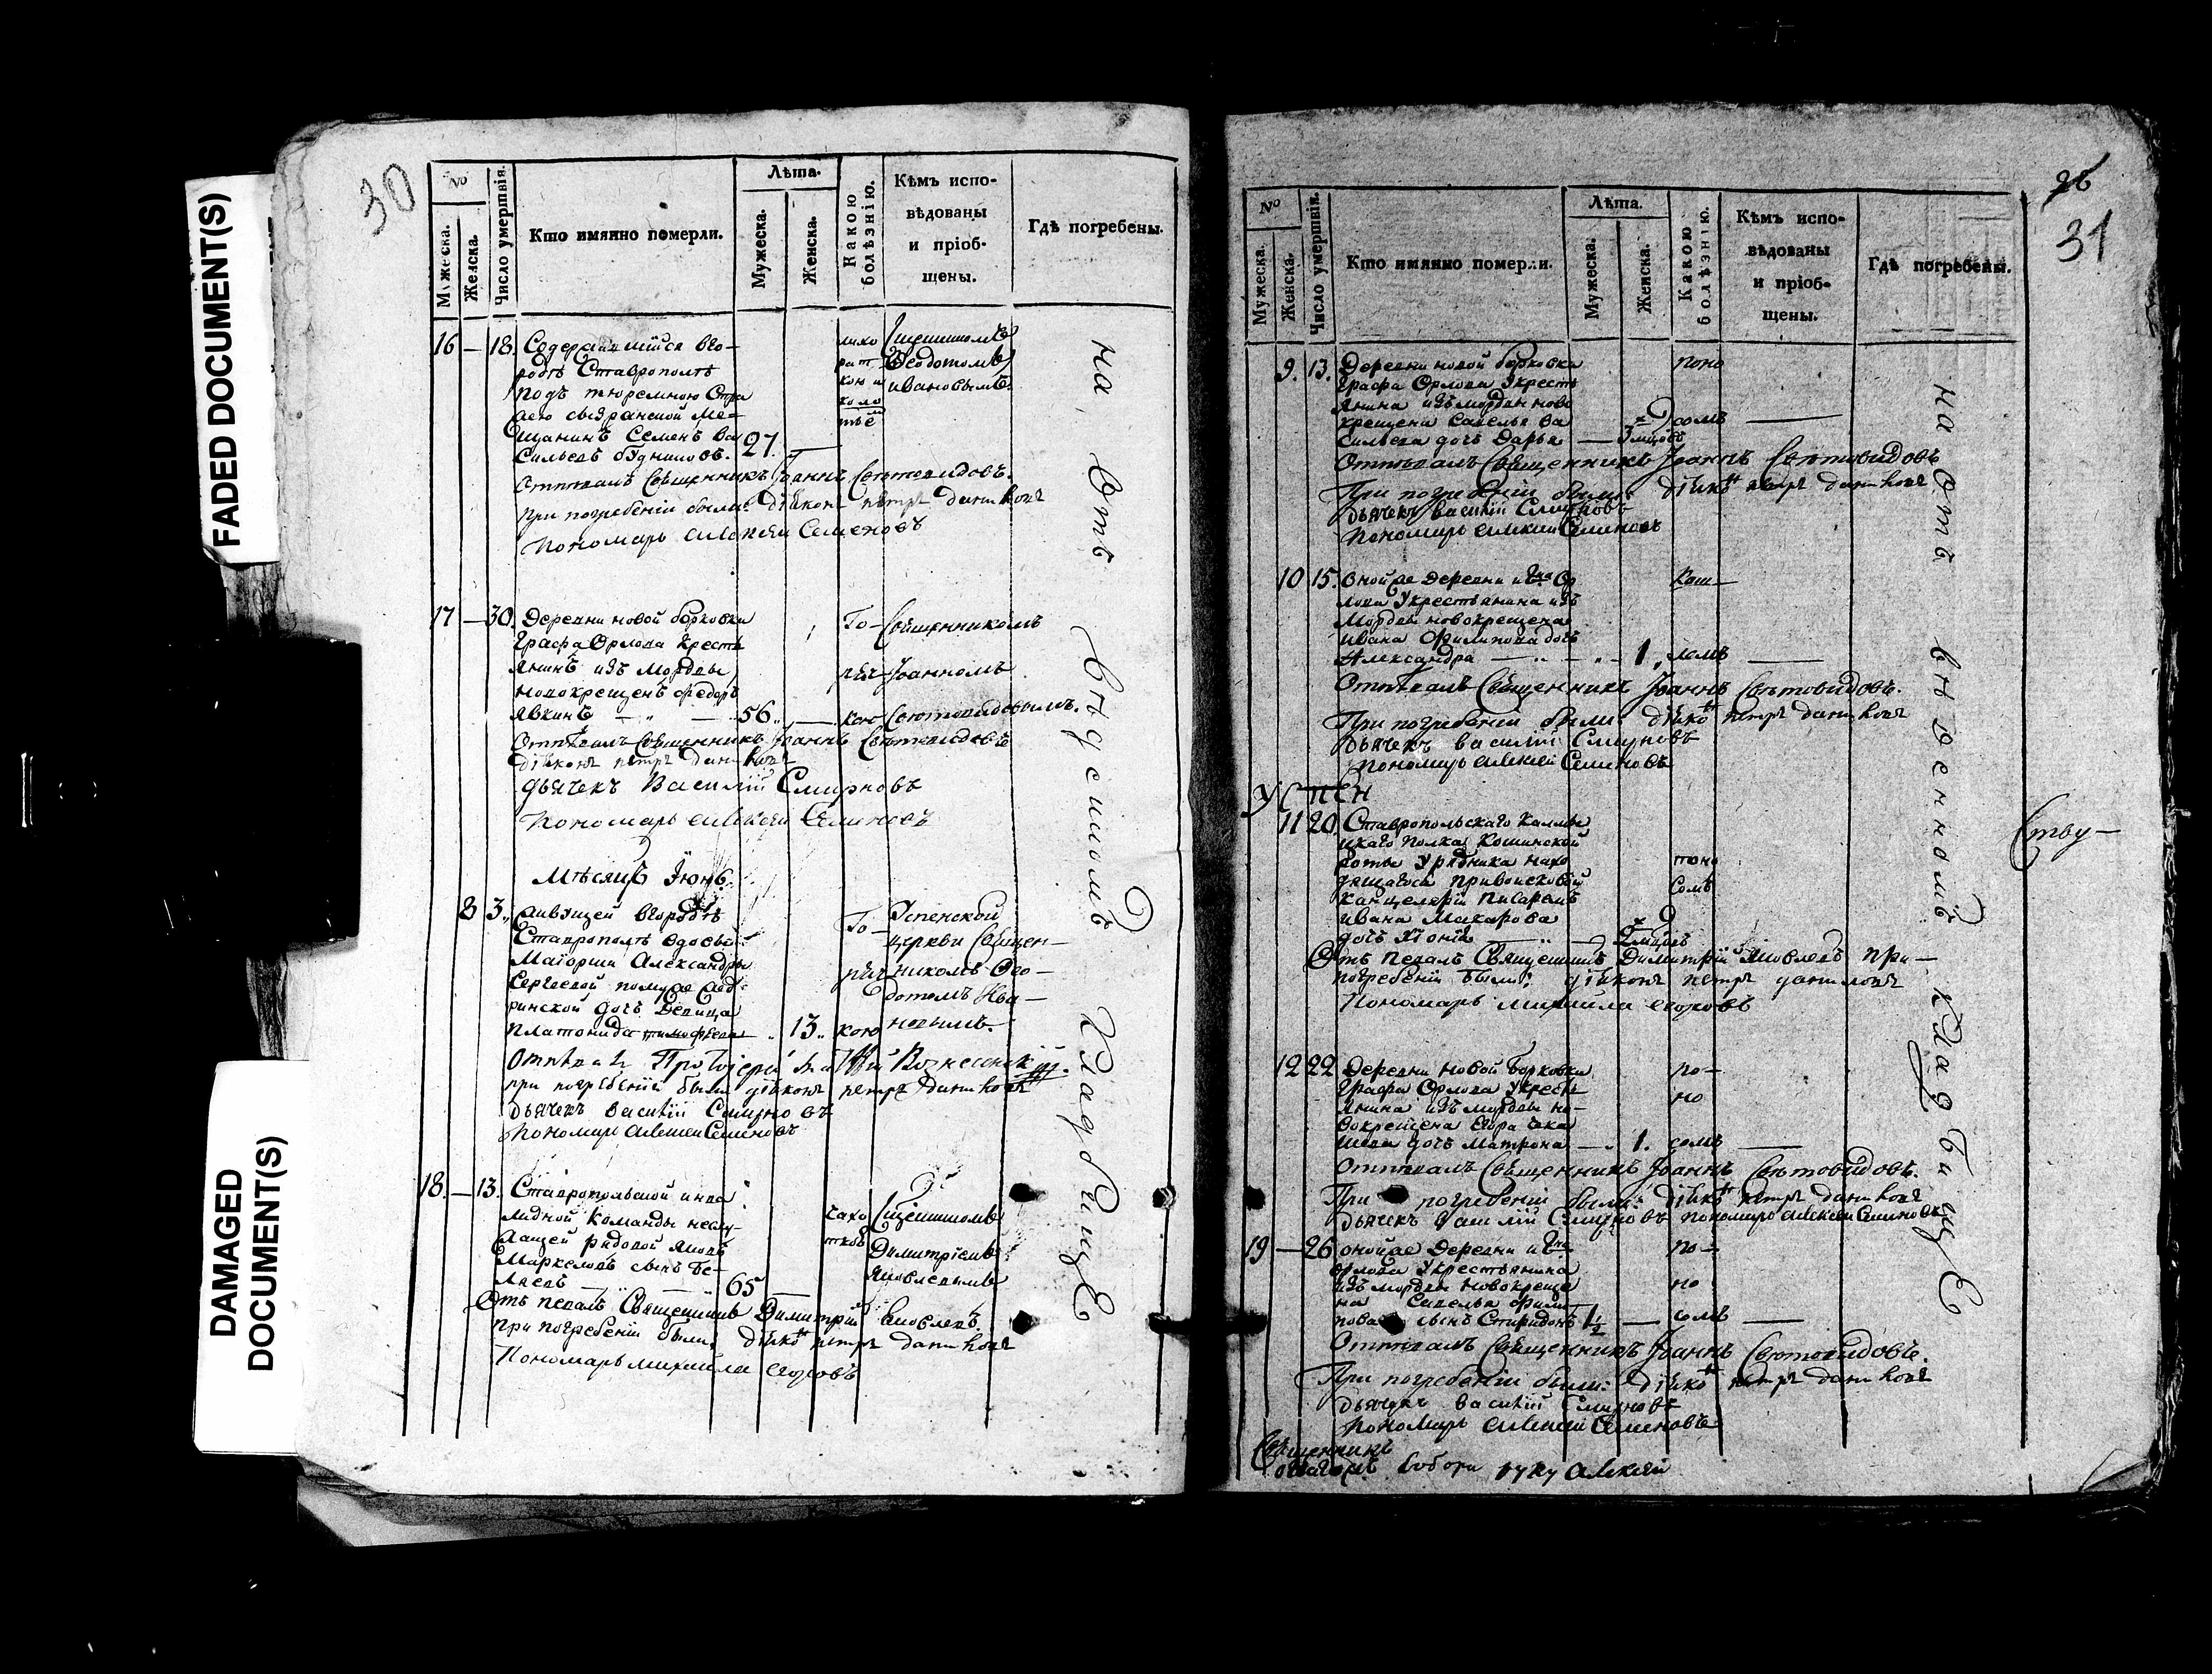 FADED DOCUMENT(S)
DAMAGED
DOCUMENT(S)
30
№
Мужеска.
Женска.
Число умершвія.
Кто имянно померли.
Лѣта.
Мужеска.
Женска.
Какою
болѣзнію.
Кѣмъ испо-
вѣдованы
и пріоб-
щены.
Гдѣ погребены.
16 — 18.
въго-
родѣ Ставрополѣ
подъ тюремною стра
жею сызранской ме-
щанинъ Семенъ Ва
сильевъ 27. —
Ѳеодотомъ
ивановымъ.
Отпѣвалъ Священникъ Іоаннъ Свѣтовидовъ.
при погребеніи были: діякон петръ данилов
Пономарь алексѣй Семеновъ
17 — 30.
Деревни новой борковки
Графа Орлова кресть
янинъ изъ мордвы
новокрещенъ Федоръ
явкинъ — 56. —
Го-
ряч
кою
Священникомъ
Іоанномъ
Свѣтовидовымъ.
Отпѣвалъ Священникъ Іоаннъ Свѣтовидовъ
діякон петръ данилов
дьячекъ Василій Смирновъ
Пономарь алексѣй Семеновъ
Мѣсяцъ Іюнь
8 3.
живущей въгородѣ
Ставрополѣ
Маіорши Александры
Сергѣевой
дочь Девица
Платонида 13.
Го-
ряч
кою
Успенской
церкви Священ-
никомъ Ѳео-
дотомъ Ива-
новымъ.
Отпѣвалъ Протоіерей
при погребеніи были діякон петръ данилов
дьячекъ василій Смирновъ
Пономарь алексѣй Семеновъ
18. — 13.
Ставропольской инва
лидной команды неслу-
жащей рядовой Яковъ
Маркеловъ сынъ Бе-
ляевъ — 65 —
чахо
ткою
Димитріемъ
Яковлевымъ
Отъ певалъ Священникъ Димитрій Яковлевъ.
при погребеніи были: діякон петръ данилов
Пономарь михайла егоровъ
на Отъ въдсиомъ кладбищѣ
26
31
№
Мужеска.
Женска.
Число умершвія.
Кто имянно померли.
Лѣта.
Мужеска.
Женска.
Какою
болѣзнію.
Кѣмъ испо-
вѣдованы
и пріоб-
щены.
Гдѣ погребены.
9. 13.
Деревни новой борковки
Графа Орлова укресть
янина изъ мордвы ново
крещена Савелья Ва
сильева дочь Дарья — 3 мцовъ
поно
сомъ —
Отпѣвалъ Священникъ Іоаннъ Свѣтовидовъ
При погребеніи были: діякон петръ данилов
дьячекъ василій Смирновъ
Пономарь алексѣй Семеновъ
10 15.
Оной же деревни и Гра Ор
лова укрестьянина изъ
Мордвы новокрещена
ивана Филипова дочь
Александра — 1.
каш-
лемъ —
Отпѣвалъ Священникъ Іоаннъ Свѣтовидовъ.
При погребеніи были: діякон петръ данилов
дьячекъ василій Смирновъ
Пономарь алексѣй Семеновъ
Успен
Ству-
11 20.
Ставропольскаго Калмы
цкаго Полка
роты урядника нахо
дящагося при войсковой
канцеляріи писаремъ
ивана Макарова
дочь
поно
сомъ
Отъ певалъ Священникъ Димитрій Яковлевъ при-
погребеніи были: діякон петръ данилов
Пономарь михайла егоровъ
12 22
Деревни новой Борковки
Графа Орлова укресть
янина изъ мордвы но-
вокрещена
дочь матрона — 1.
по-
но
сомъ —
Отпѣвалъ Священникъ Іоаннъ Свѣтовидовъ.
При погребеніи были: діякон петръ данилов
дьячекъ василій Смирновъ пономарь алексѣй Семеновъ
19 — 26
оной же деревни и Гра
орлова укрестьянина
изъ мордвы новокреще
на Савелья фили-
пова сынъ Спиридонъ 1½ —
по-
но
сомъ —
Отпѣвалъ Священникъ Іоаннъ Свѣтовидовъ.
При погребеніи были: діякон петръ данилов
дьячекъ василій Смирновъ
Пономарь алексѣй Семеновъ
Священникъ
собора руку алексѣй
на Отъ кладбищѣ